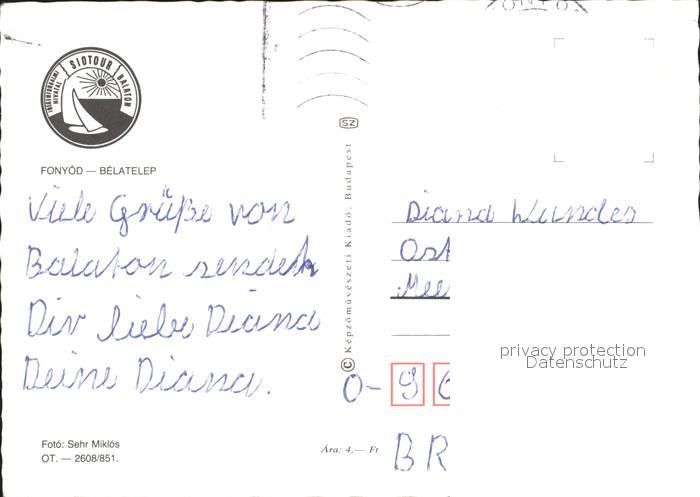 SIOTOUR BALATON
IDEGENFORGALMI HIVATAL
FONYÓD — BÉLATELEP
Viele Grüße von
Balaton sendet
Dir liebe Diana
Deine Diana.
Fotó: Sehr Miklós
OT. — 2608/851.
SZ
© Képzőművészeti Kiadó, Budapest
Ára: 4,— Ft
Diana
Ost
Mee
O- 9
BR
privacy protection
Datenschutz